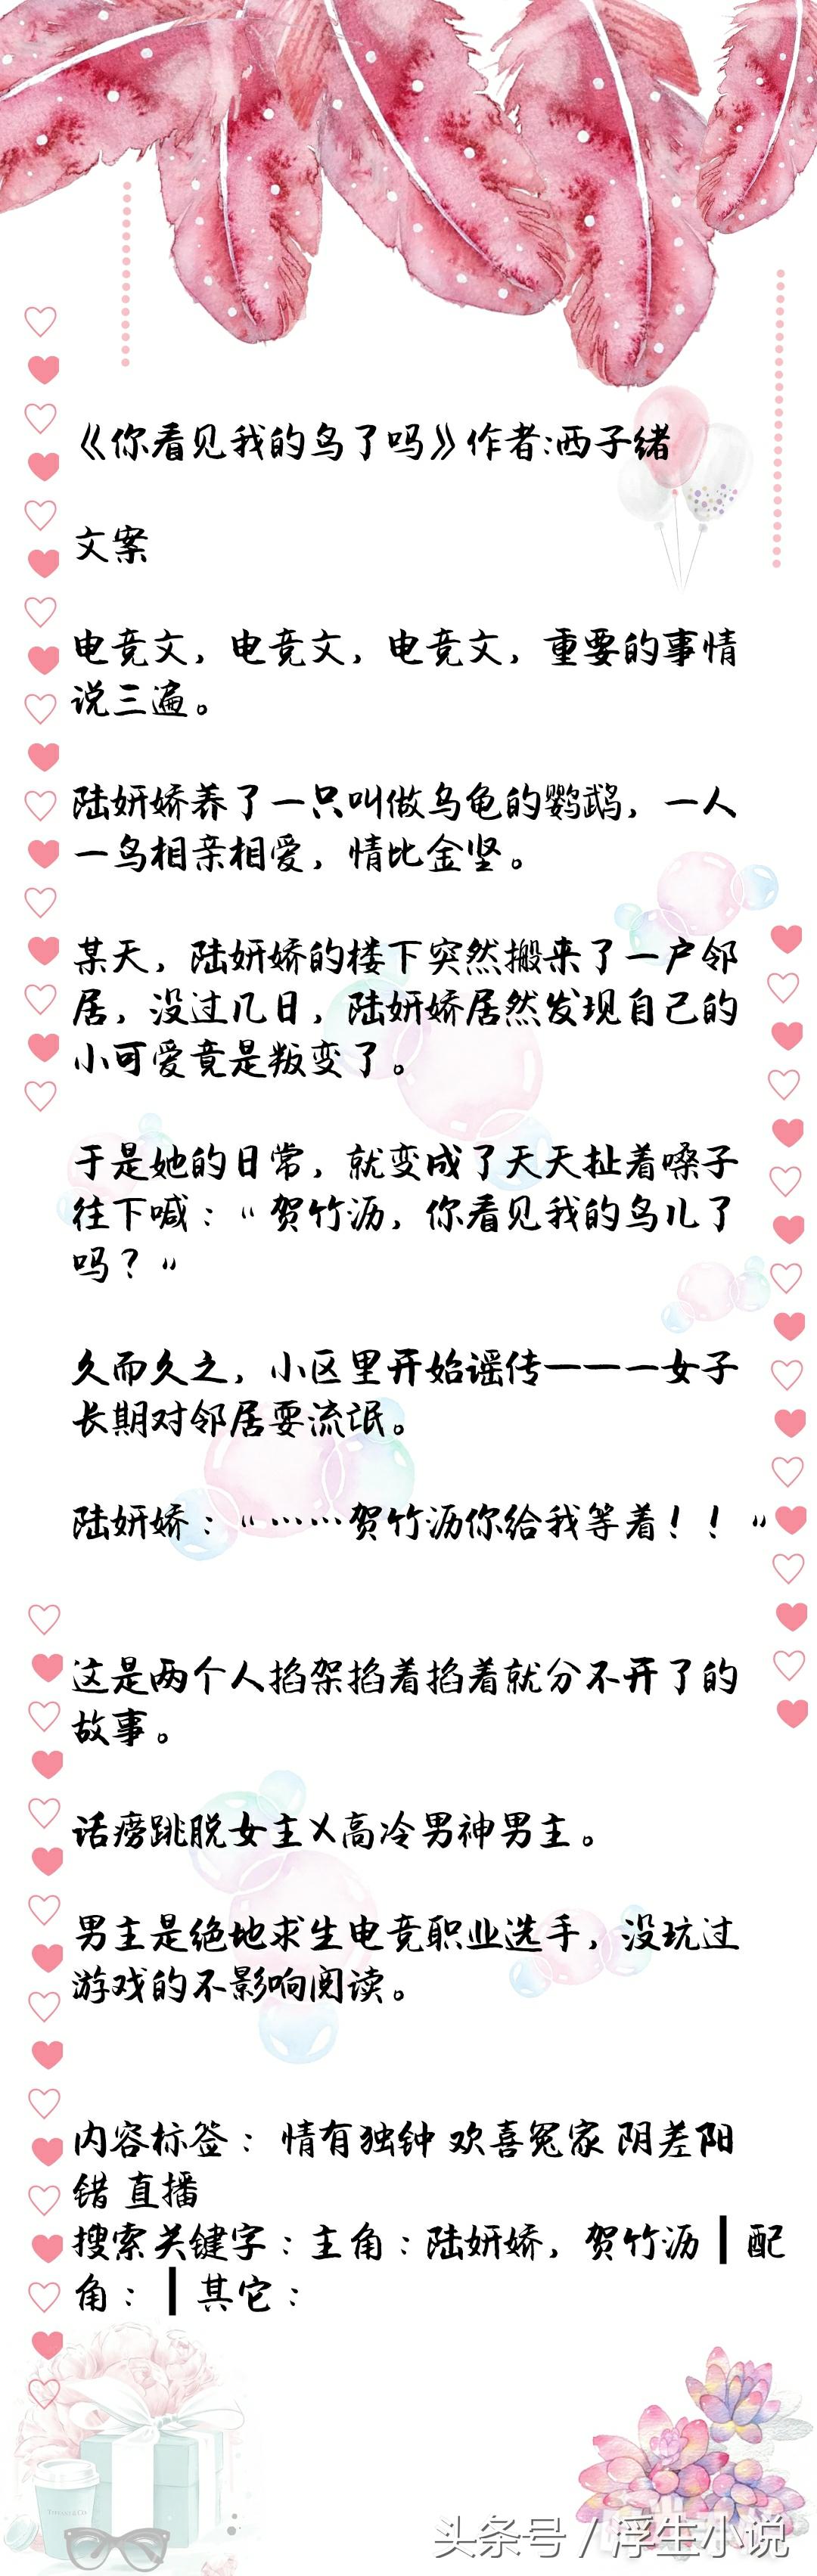 《你看见我的鸟了吗》作者:西子绪
文案
电竞文，电竞文，电竞文，重要的事情
说三遍。
陆妍娇养了一只叫做乌龟的鹦鹉，一人
一鸟相亲相爱，情比金坚。
某天，陆妍娇的楼下突然搬来了一户邻
居，没过几日，陆妍娇居然发现自己的
小可爱竟是叛变了。
于是她的日常，就变成了天天扯着嗓子
往下喊："贺竹沥，你看见我的鸟儿了
吗？"
久而久之，小区里开始谣传——一女子
长期对邻居耍流氓。
陆妍娇："……贺竹沥你给我等着！！"
这是两个人掐架掐着掐着就分不开了的
故事。
话痨跳脱女主X高冷男神男主。
男主是绝地求生电竞职业选手，没玩过
游戏的不影响阅读。
内容标签： 情有独钟 欢喜冤家 阴差阳
错 直播
搜索关键字：主角：陆妍娇，贺竹沥┃配
角：┃其它：
TIFFANY & CO.
头条号 / 浮生小说